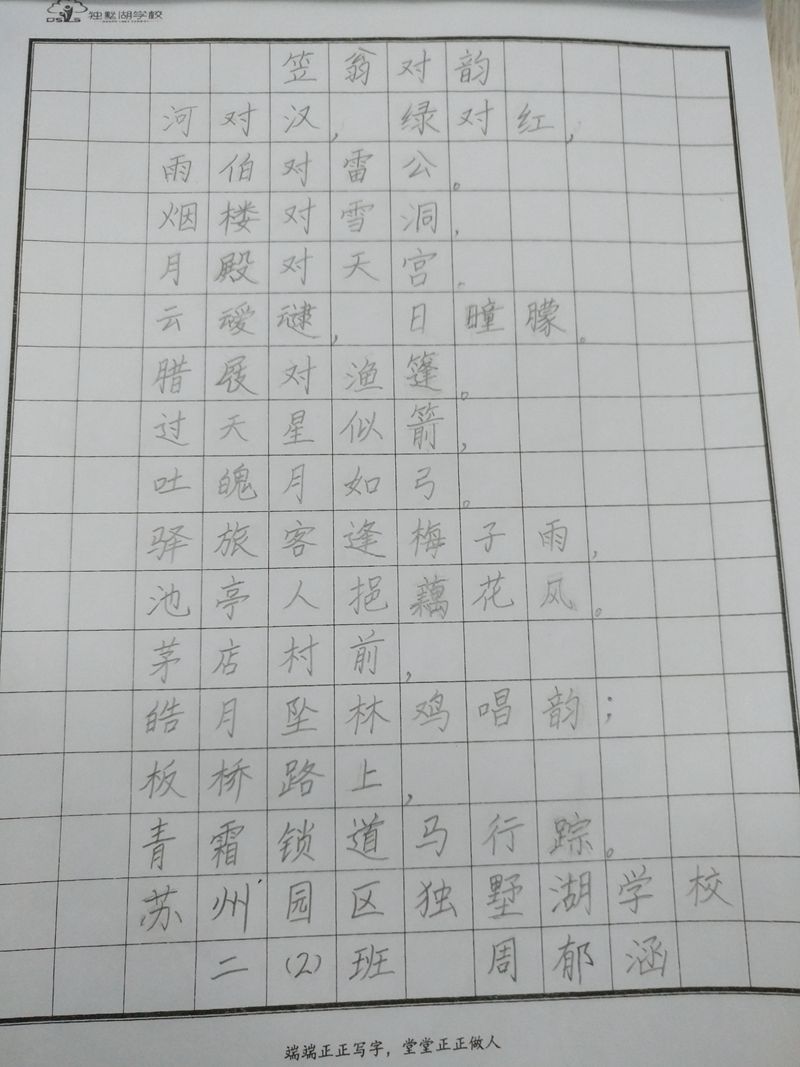 独墅湖学校
笠翁对韵
河对汉，绿对红，
雨伯对雷公。
烟楼对雪洞，
月殿对天宫。
云叆叇，日曈朦。
腊屐对渔篷。
过天星似箭，
吐魄月如弓。
驿旅客逢梅子雨，
池亭人挹藕花风。
茅店村前，
皓月坠林鸡唱韵；
板桥路上，
青霜锁道马行踪。
苏州园区独墅湖学校
二(2)班 周郁涵
端端正正写字，堂堂正正做人